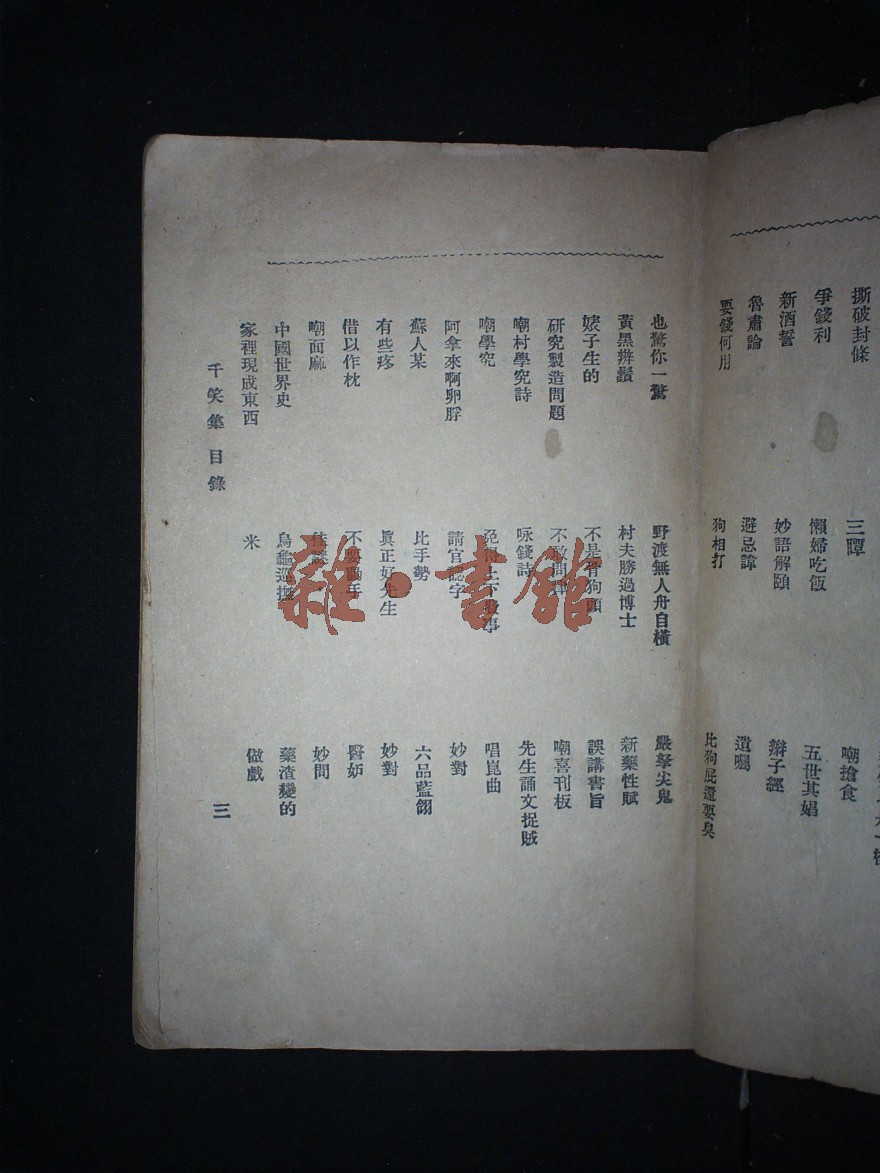 撕破封條
爭錢利
三賻
嘲搶食
新酒誓
懶婦吃飯
五世其娼
魯肅論
妙語解頤
辮子經
要錢何用
避忌諱
遺囑
狗相打
比狗屁還要臭
也驚你一驚
野渡無人舟自橫
嚴拏尖鬼
黃黑辨鬚
村夫勝過博士
新藥性賦
婊子生的
不是 狗頭
誤講書旨
研究製造問題
不敢問
嘲喜刊板
嘲村學究詩
咏錢詩
先生誦文捉賊
嘲學究
免得上下 事
唱崑曲
阿拿來啊卵脬
請官認字
妙對
蘇人某
比手勢
六品藍翎
有些疼
眞正好先生
妙對
借以作枕
不要動手
醫妒
嘲面麻
佳謎
妙問
中國世界史
烏龜巡撫
藥渣變的
家裡現成東西
米
做戲
千笑集 目錄
三
雜·書館